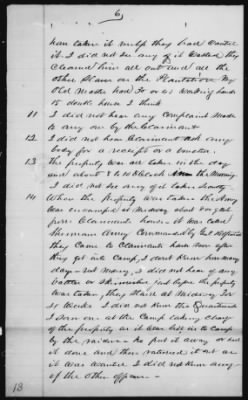 6
han taken itulp they had wanted
it. I did not see any of it wasted they
cleaned him all out and all the
other Place on the Plantation My
Old Master had Fo or 60 working hands
to double house I think
11 I did not hear any Complaint Made
to any one by the Claimant
12. I did not hear Claimant ask any
body for a receipt or a voucher.
13 The property was all taken in the day
time about 8 to 10 o'clock in the Morning
I did not see any of it taken Secretly
14 When the property was taken the Army
was encamped at Midway about
from Claimants house it was Called
Sherman Army Commanded by Genl
they Came to Claimants house soon after
they got into Camp, I dont know how many
day - not many, I did not hear of any
battle or Skirmishes just before the property
was taken, they staid at Midway for
Weeks I did not know the Quarterm
I seen one at the Camp taking charge
of the property as it was brot in to Camp
by the raiders he put it away or had
it done and then rationed it out as
it was wanted I did not know any
of the other officers
18